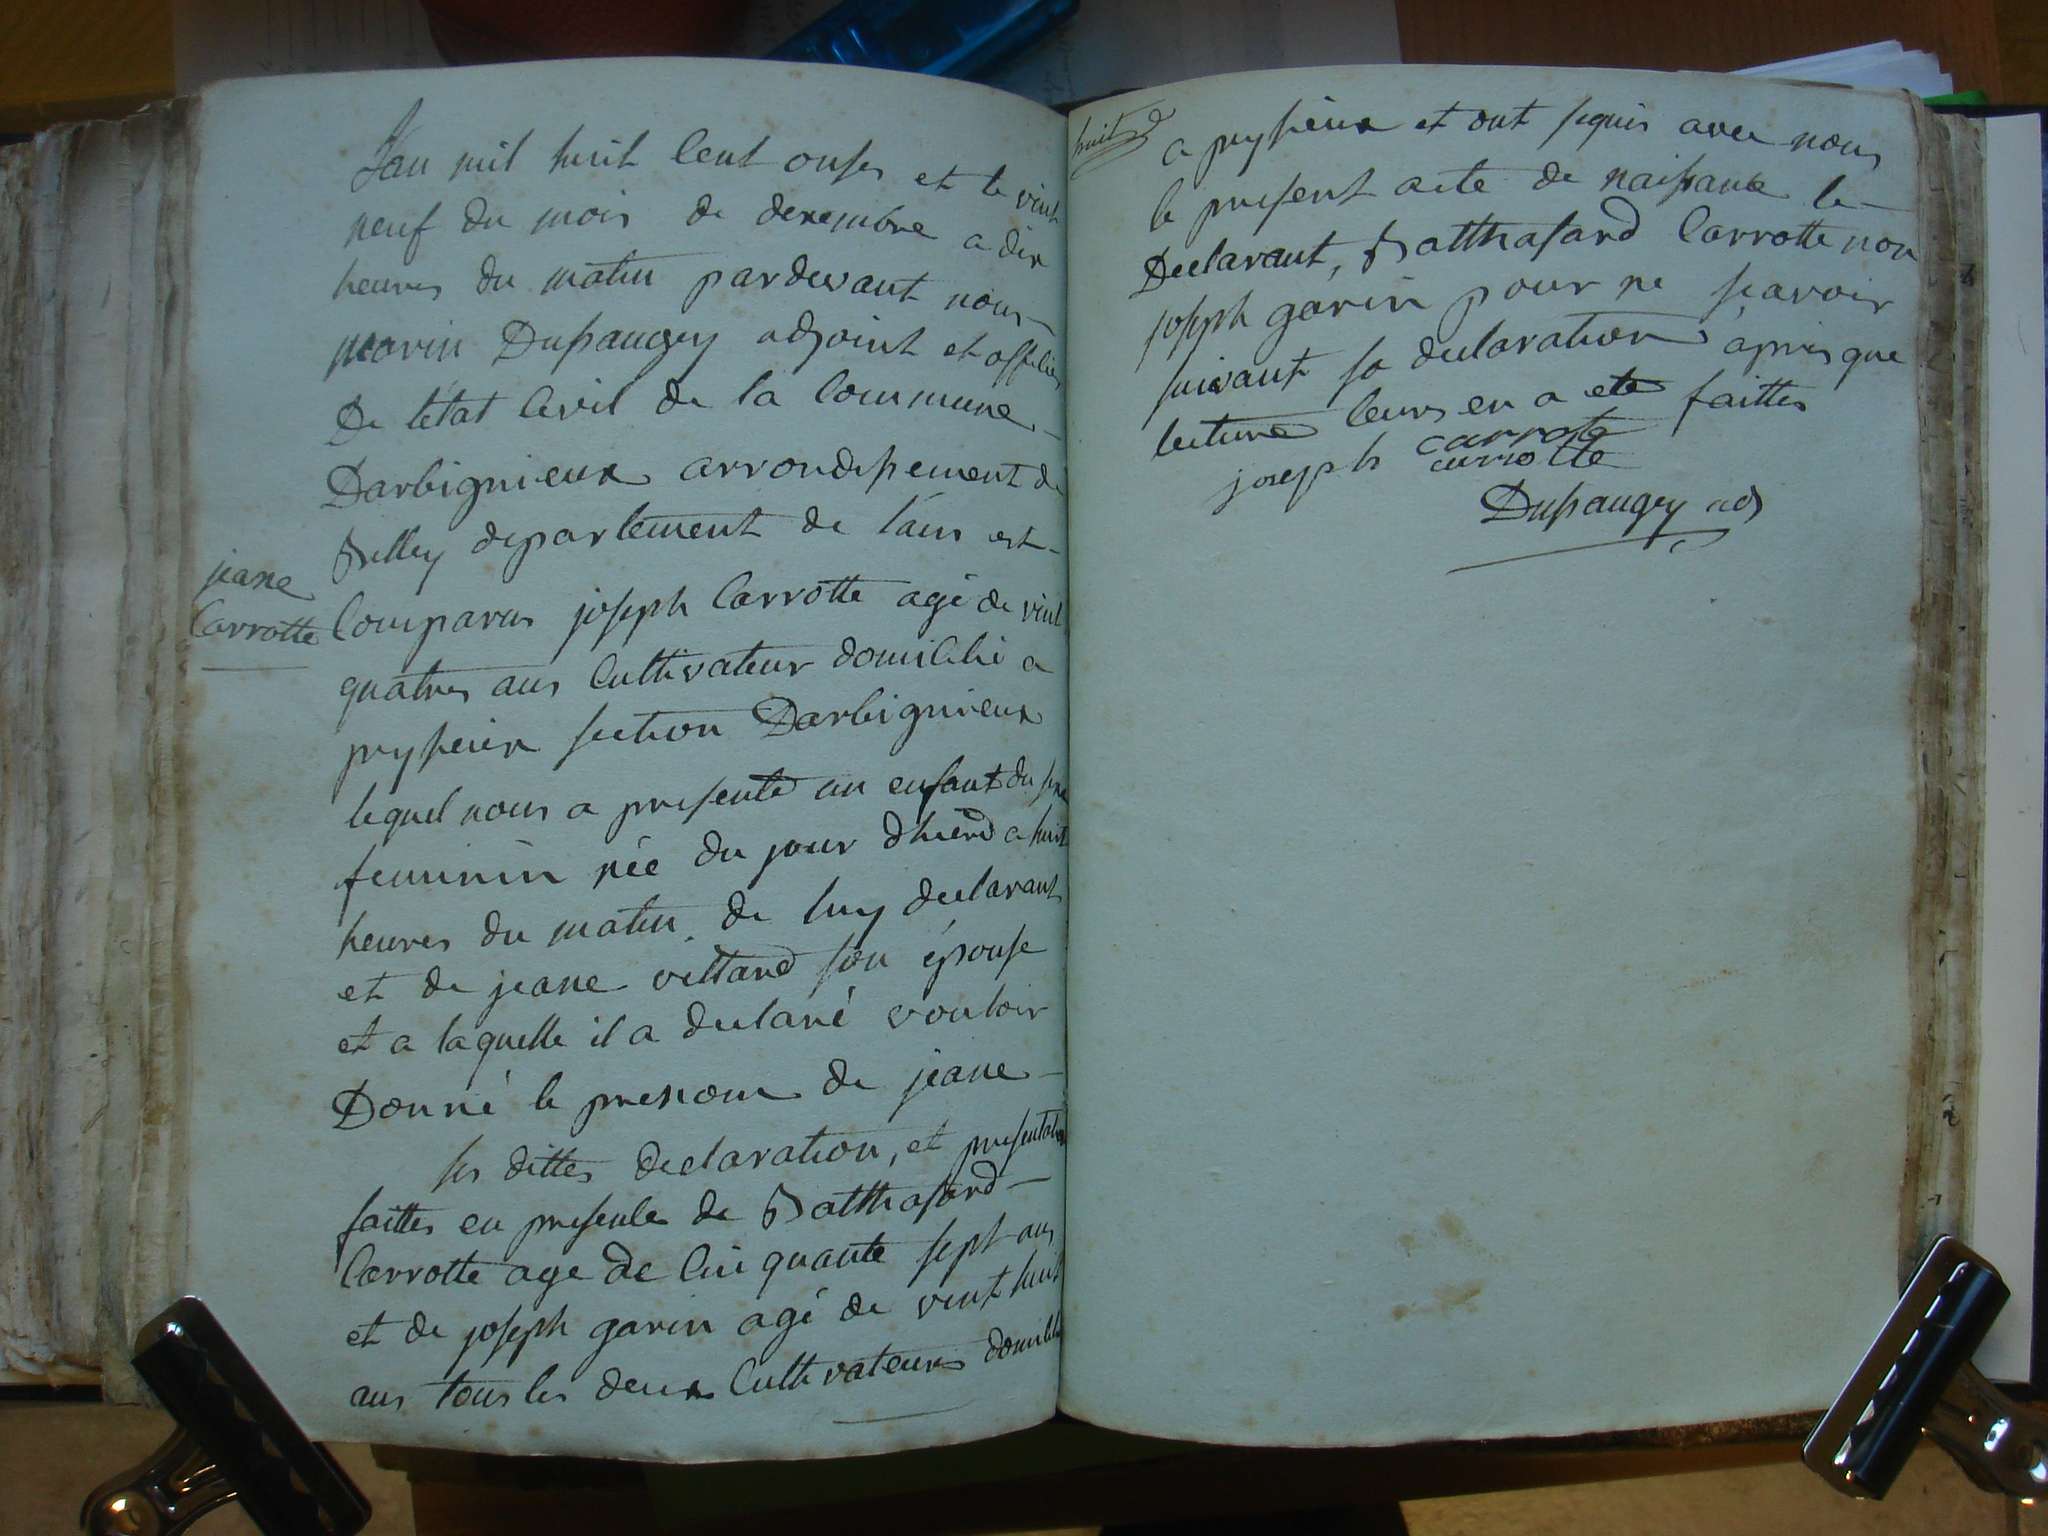 L'an mil huit Cent onses et le vint
neuf du mois de decembre a dix
heures du matin pardevant nous
marin Dupaugey adjoint et officier
De l'état Civil de la Commune
Darbignieux arrondissement de
Belley departement de l'ain est
jeane
Carrotte
Comparus joseph Carrotte agé de vint
quatres ans Cultivateur domicilié a
peyzieux section Darbignieux
lequel nous a presenté un enfant du sexe
feminin née du jour dhierd a huit
heures du matin de luy declarant
et de jeane vettard son épouse
et a laquelle il a declaré vouloir
Donné le prenom de jeane
les dittes declaration, et presentation
faittes en presences de Balthasard
Carrotte age de Cinquante sept ans
et de joseph garin agé de vint huit
ans tous les deux Cultivateurs domicilie
huit
a peyzieux et ont signés avec nous
le present acte de naissance le
Declarant, Balthasard Carrotte non
joseph garin pour ne scavoir
suivant sa declaration après que
lecture leurs en a ete faittes
carrote
joseph carrotte
Dupaugey adj